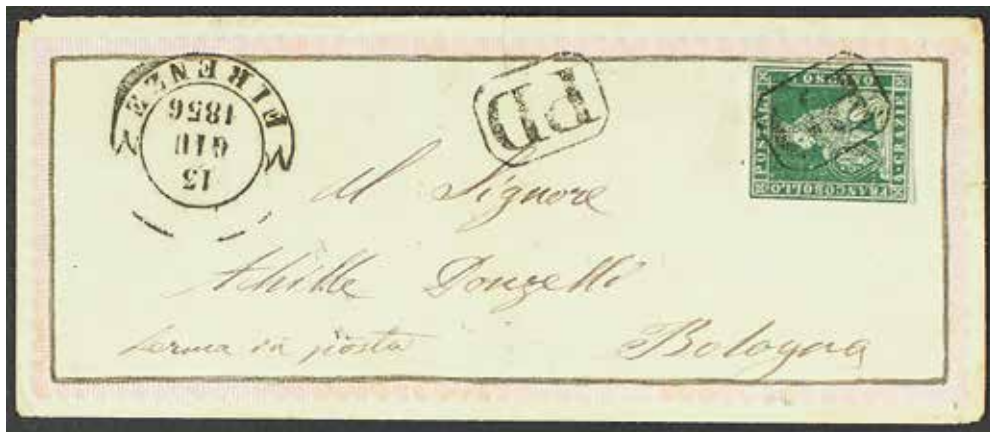 FIRENZE
13
GIU
1856
PD
PD
FRANCOBOLLO
POSTALE
TOSCANO
Al Signore
Achille Donzelli
ferma in posta
Bologna